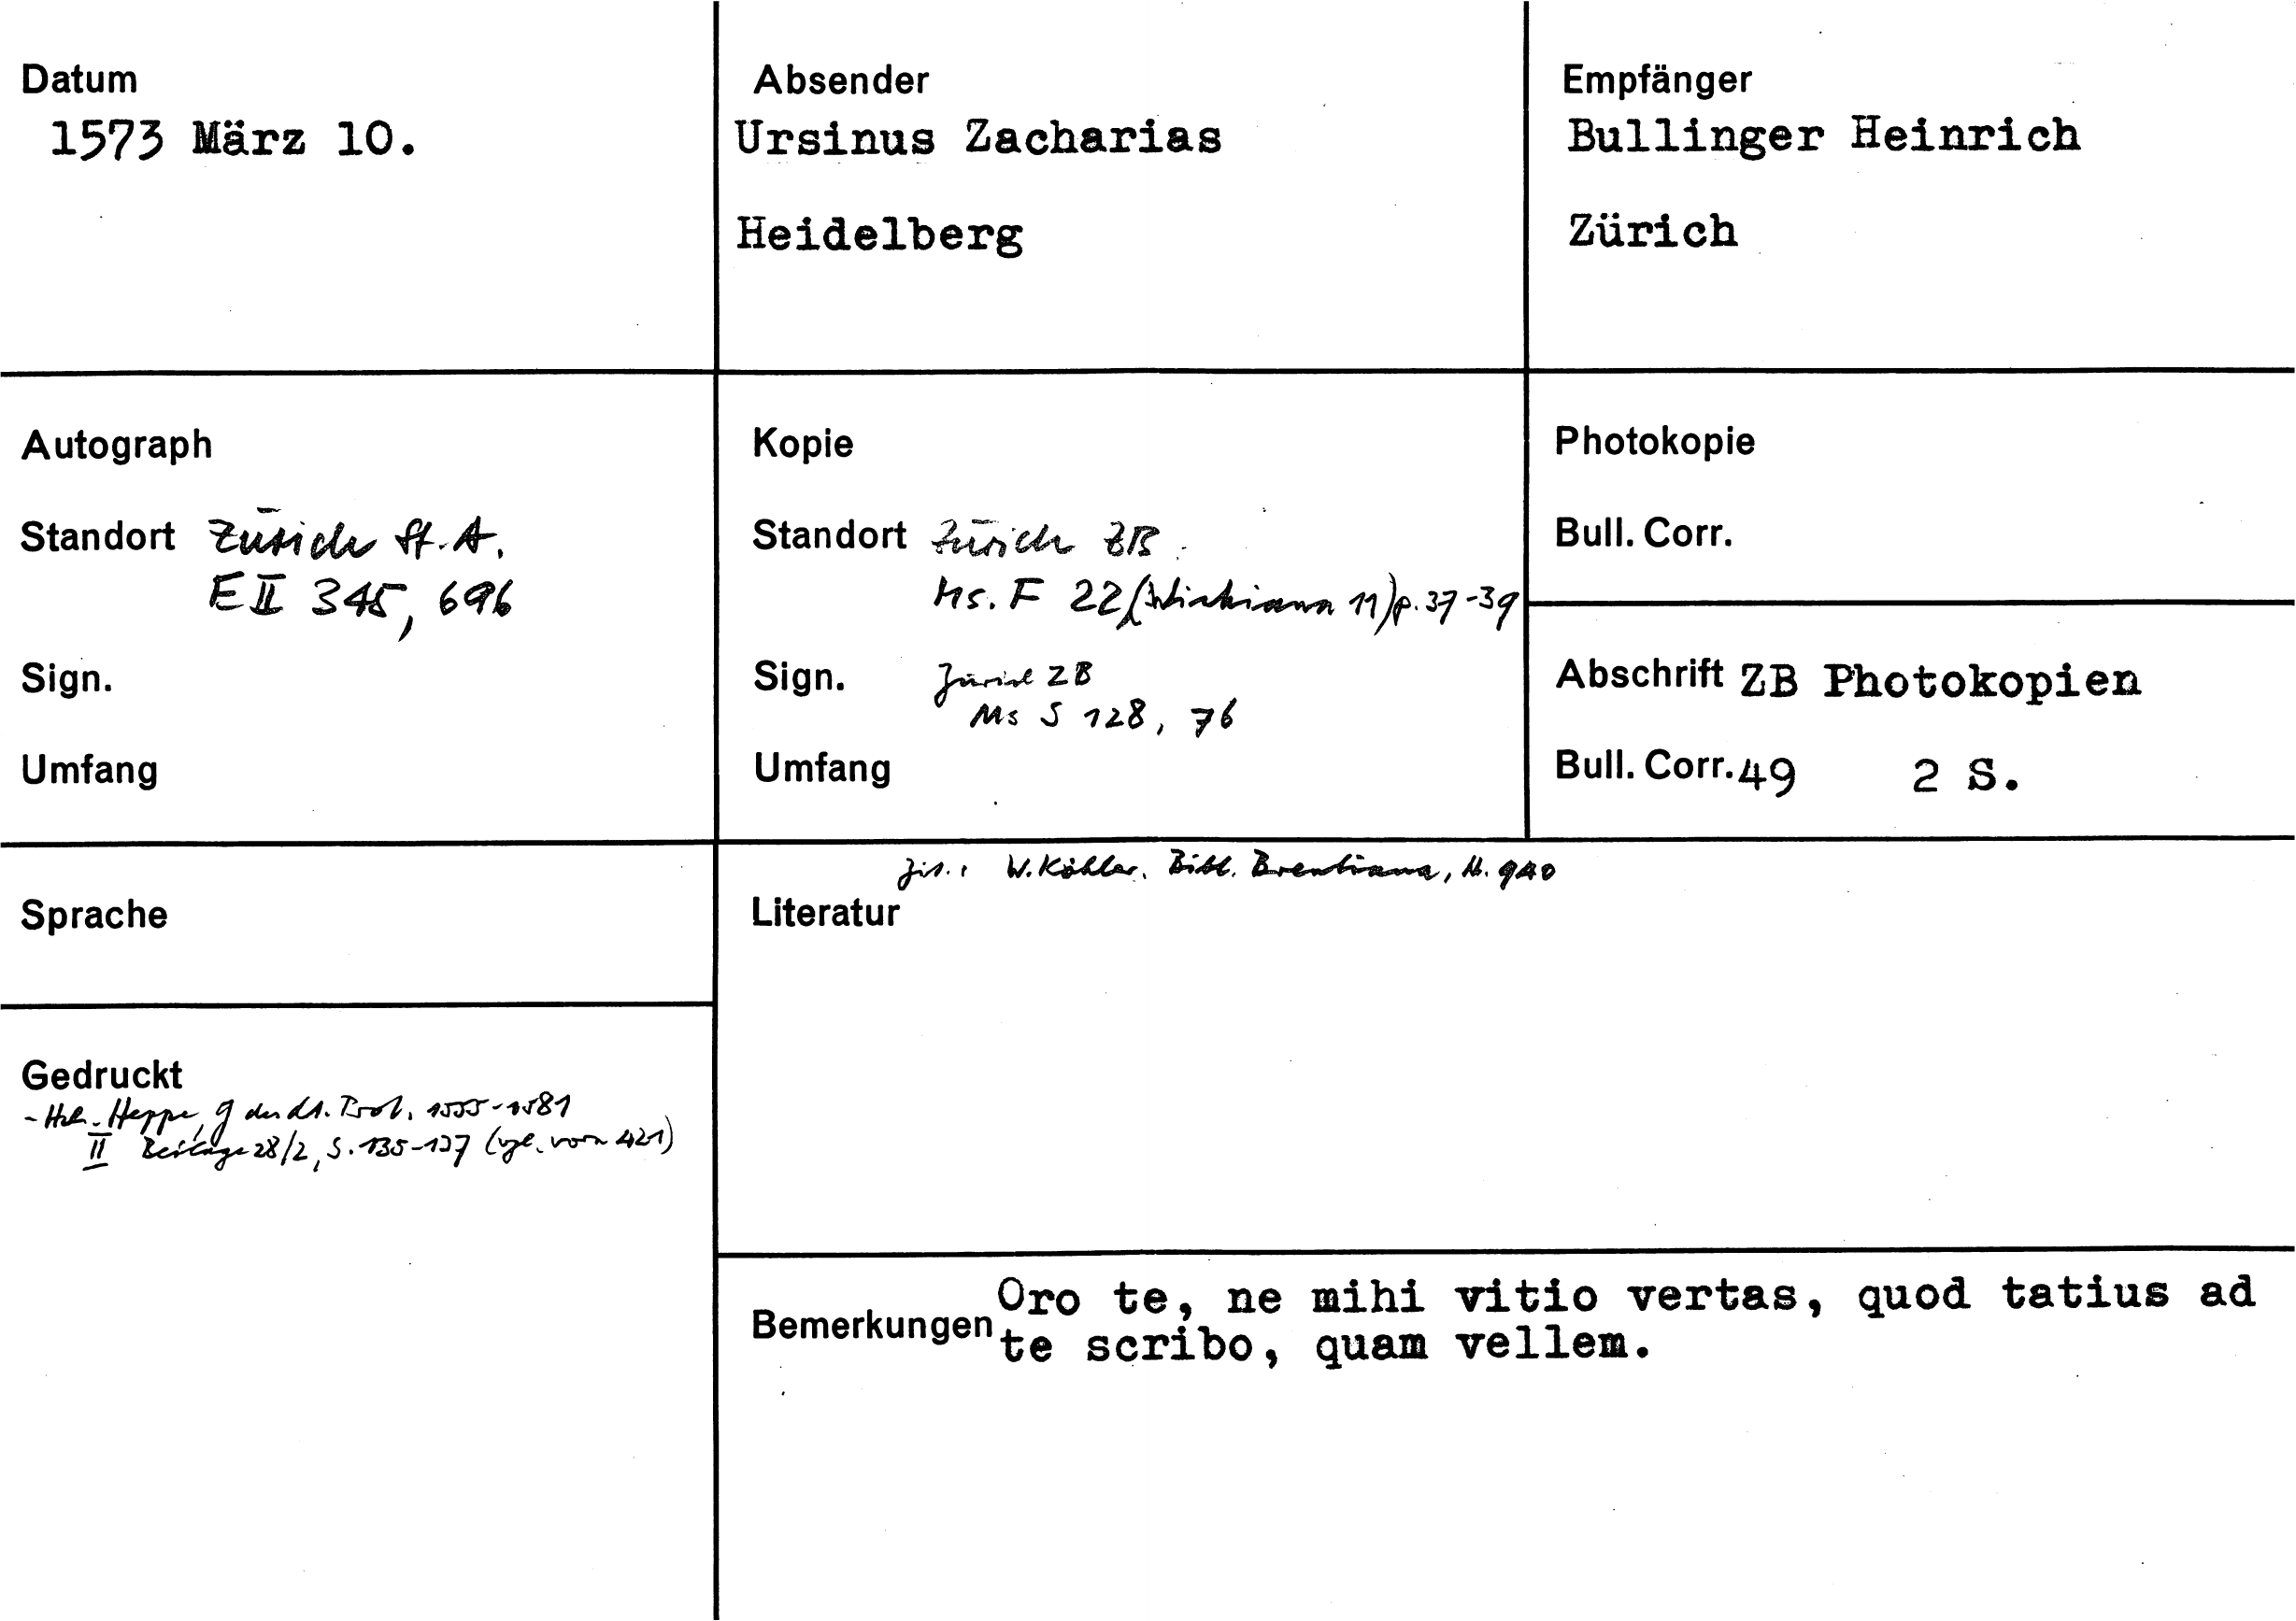 Datum
1573 März 10.
Absender
Ursinus Zacharias
Heidelberg
Empfänger
Bullinger Heinrich
Zürich
Autograph
Standort Zürich St. A.
E II 345, 696
Sign.
Umfang
Kopie
Standort Zürich ZB.
Ms. F 22 (Wickiana 11) p. 37-39
Sign. Zürich ZB
Ms S 128, 76
Umfang
Photokopie
Bull. Corr.
Abschrift ZB Photokopien
Bull. Corr. 49 2 S.
Sprache
Gedruckt
- Heppe, G des dt. Prot. 1555-1581
II Beilage 28/2, S. 135-137 (vgl. vorn 421)
zit.: W. Köhler, Bibl. Brentiana, N. 940
Literatur
Bemerkungen Oro te, ne mihi vitio vertas, quod tatius ad
te scribo, quam vellem.